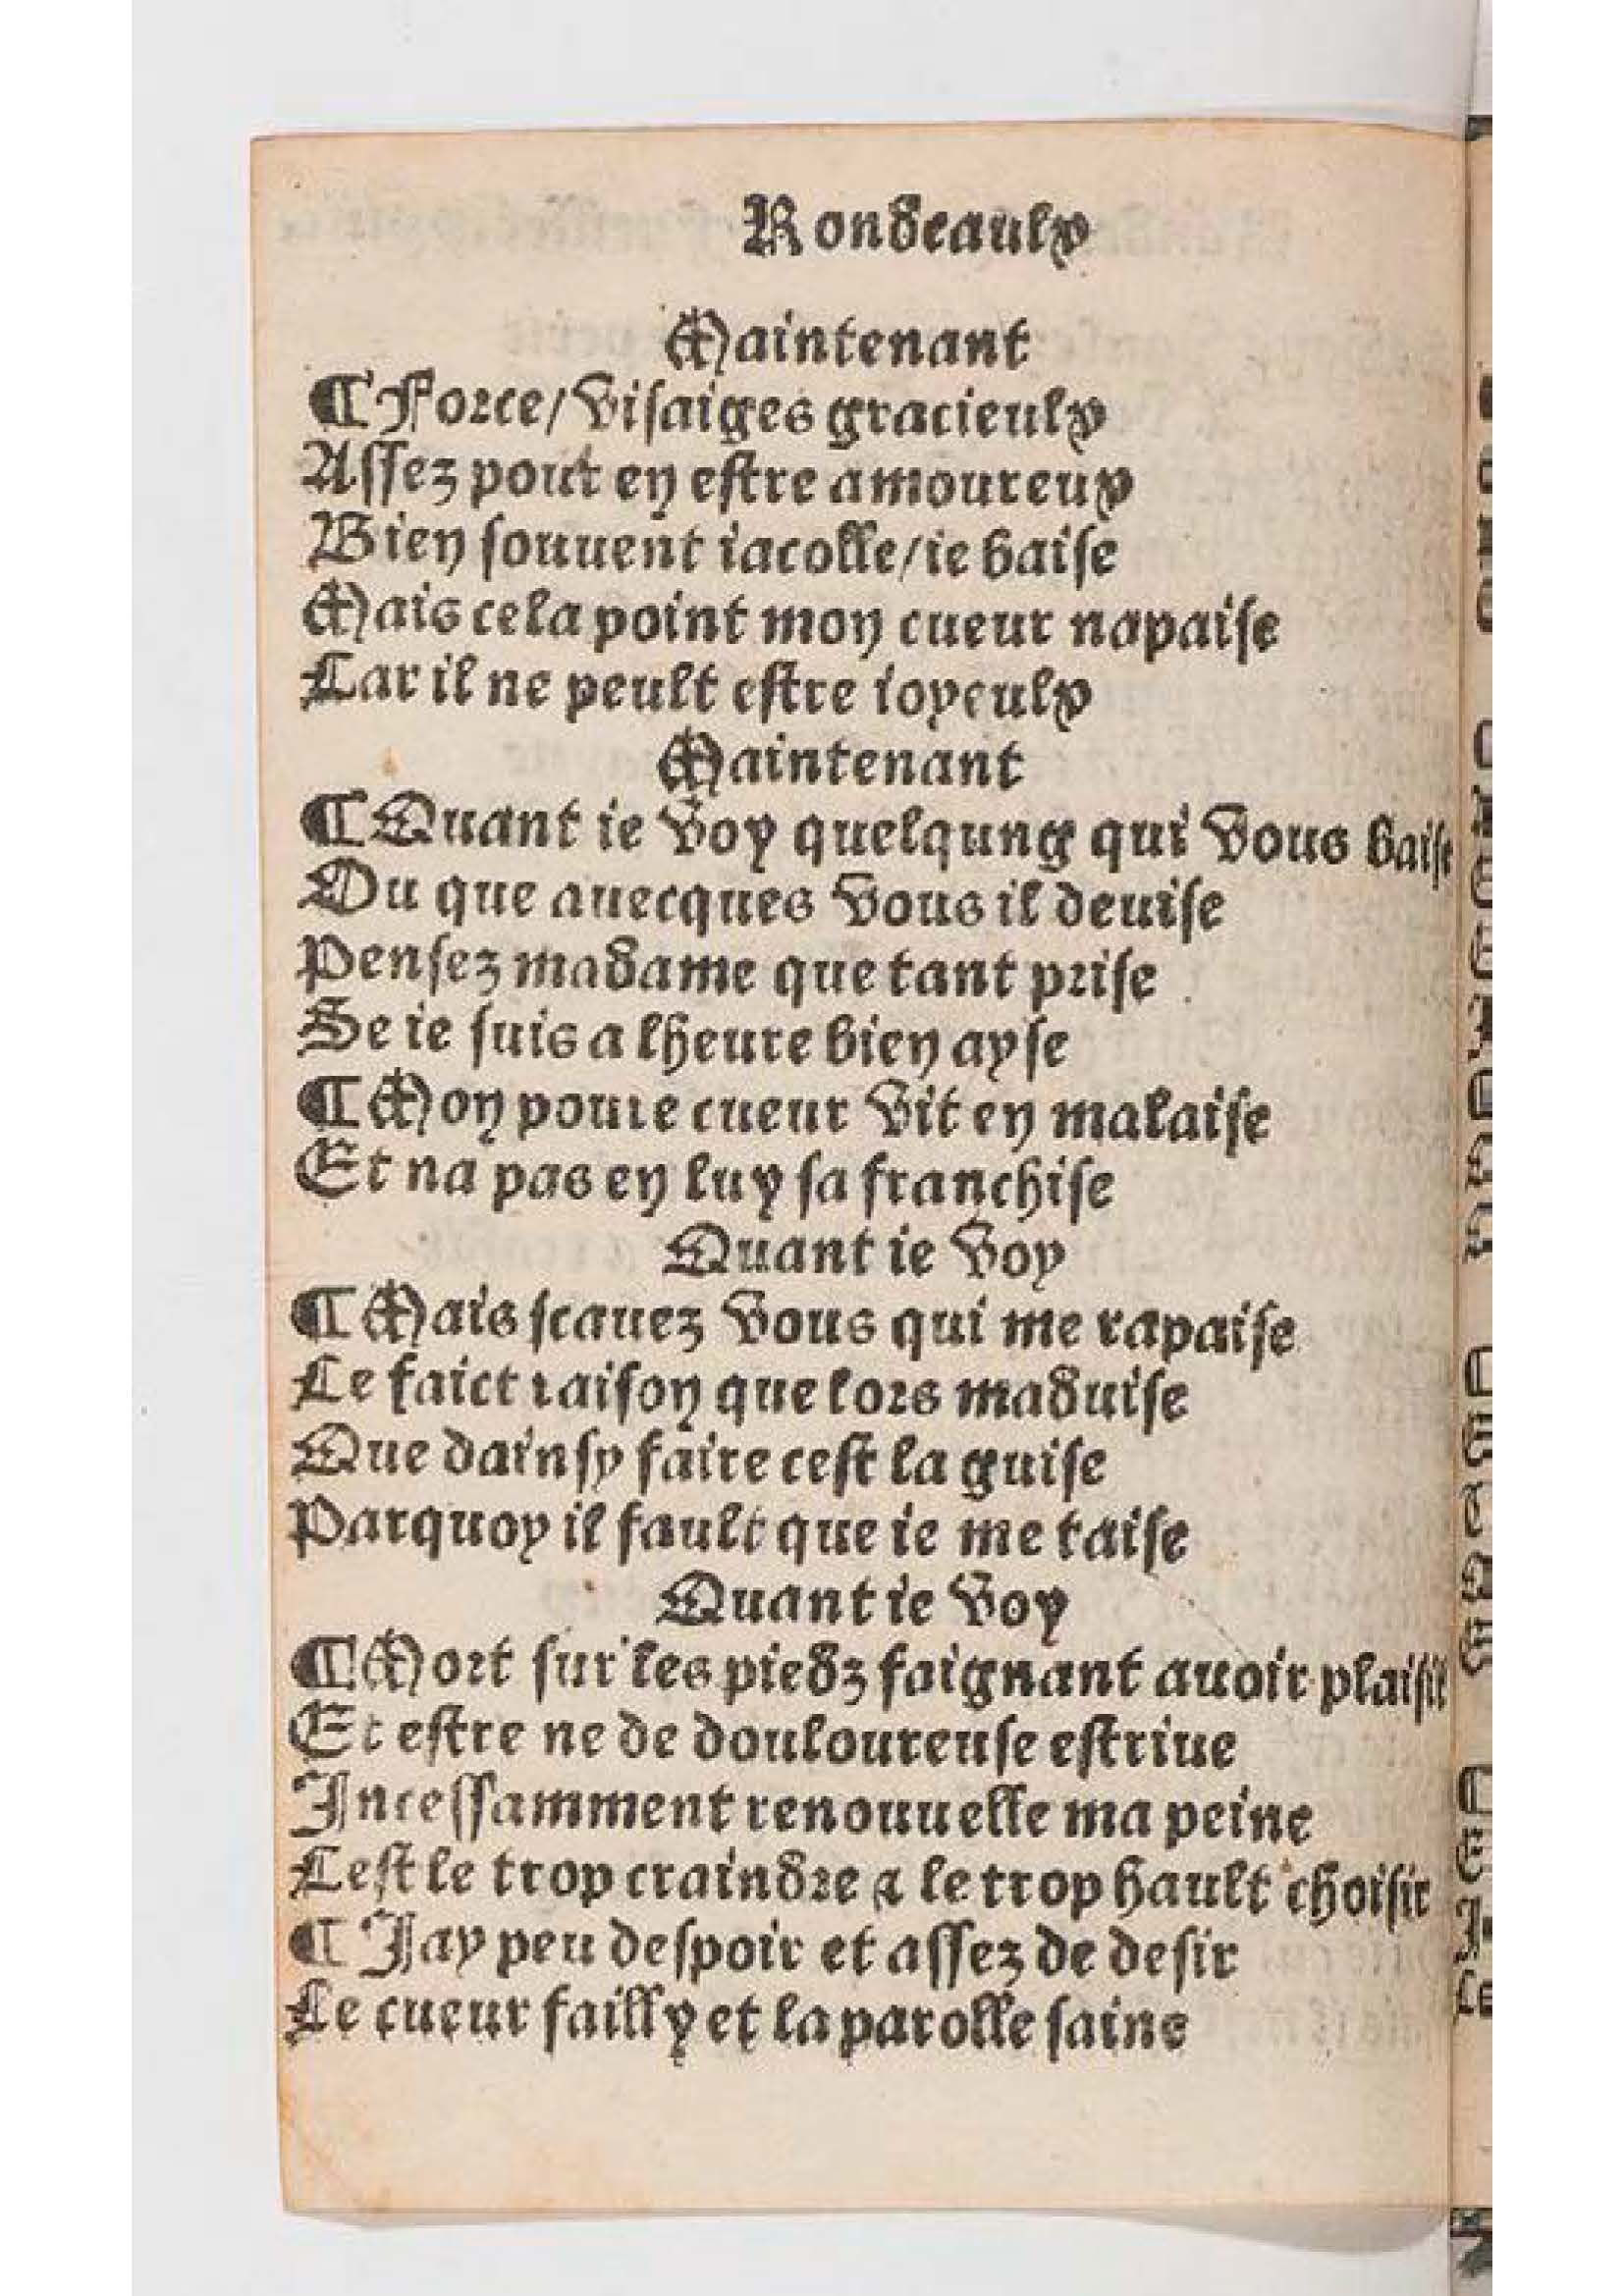 Rondeaulx
Maintenant
¶Force/visaiges gracieulx
Assez pour en estre amoureux
Bien souuent iacolle/ie baise
Mais cela point mon cueur napaise
Car il ne peult estre ioyeulx
Maintenant
¶Quant ie voy quelqung qui vous baise
Ou que auecques vous il deuise
Pensez madame que tant prise
Se ie suis a lheure bien ayse
¶Mon poure cueur vit en malaise
Et na pas en luy sa franchise
Quant ie voy
¶Mais scauez vous qui me rapaise
Ce faict raison que lors maduise
Que dainsy faire cest la guise
Parquoy il fault que ie me taise
Quant ie voy
¶Mort sur les piedz faignant auoir plaisir
Et estre ne de douloureuse estriue
Incessamment renouuelle ma peine
Cest le trop craindre & le trop hault choisir
¶Jay peu despoir et assez de desir
Le cueur failly et la parolle saine